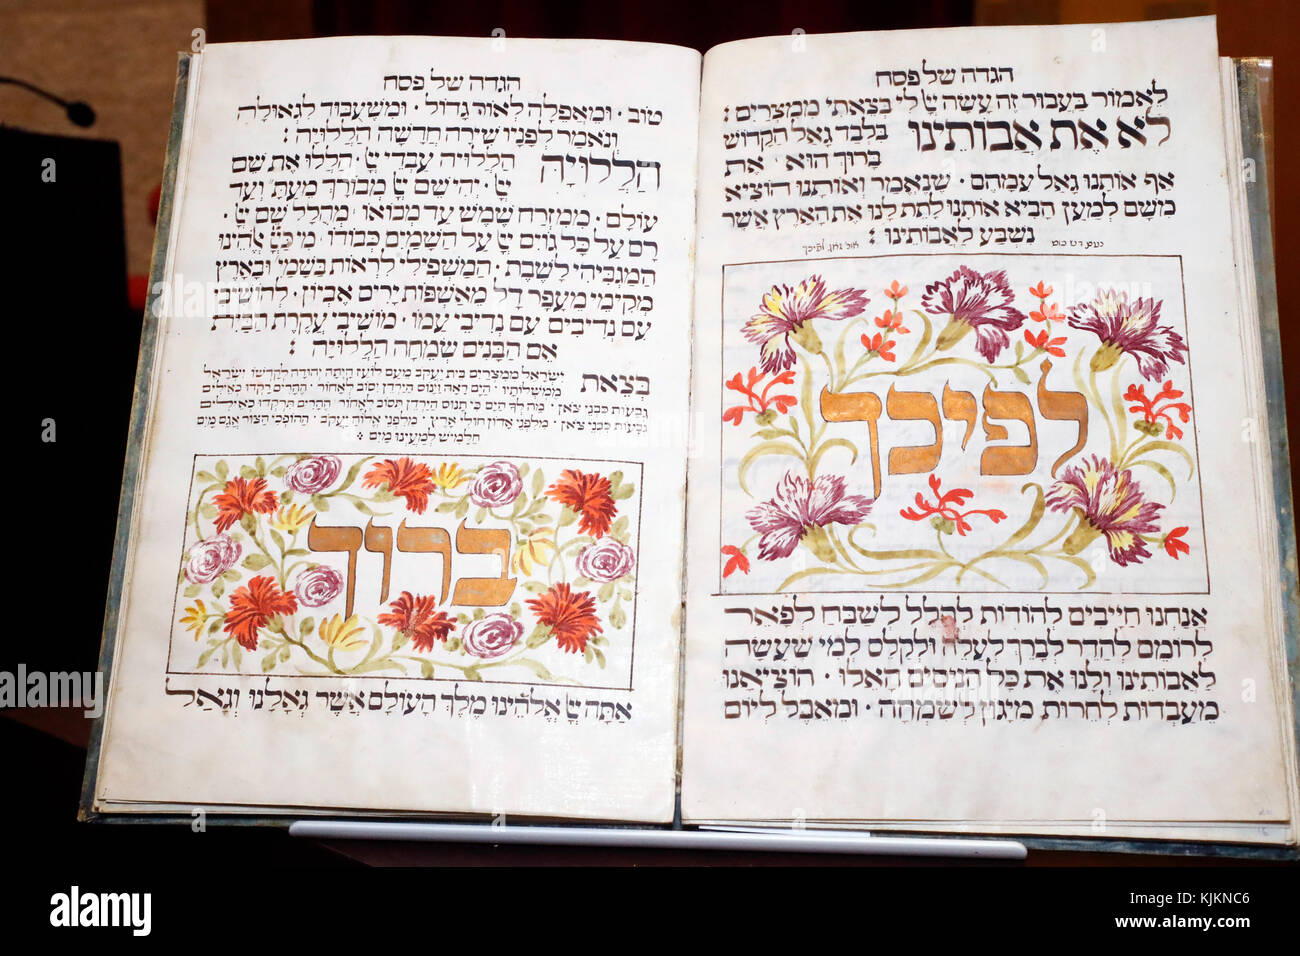 הגדה של פסח
לֵאמוֹר בַּעֲבוּר זֶה עָשָׂה יְיָ לִי בְּצֵאתִי מִמִּצְרַיִם :
לֹא אֶת אֲבוֹתֵינוּ בִּלְבַד גָאַל הַקָדוֹשׁ
בָּרוּךְ הוּא · אֶת
אַף אוֹתָנוּ גָאַל עִמָּהֶם · שֶׁנֶּאֱמַר וְאוֹתָנוּ הוֹצִיא
מִשָּׁם לְמַעַן הָבִיא אוֹתָנוּ לָתֶת לָנוּ אֶת הָאָרֶץ אֲשֶׁר
נִשְׁבַּע לַאֲבוֹתֵינוּ :
לפיכך
אֲנַחְנוּ חַיָּיבִים לְהוֹדוֹת לְהַלֵל לְשַׁבֵּחַ לְפָאֵר
לְרוֹמֵם לְהַדֵּר לְבָרֵךְ לְעַלֵּה וּלְקַלֵּס לְמִי שֶׁעָשָׂה
לַאֲבוֹתֵינוּ וְלָנוּ אֶת כָּל הַנִּסִּים הָאֵלוּ · הוֹצִיאָנוּ
מֵעַבְדוּת לְחֵרוּת מִיָּגוֹן לְשִׂמְחָה · וּמֵאֵבֶל לְיוֹם
הגדה של פסח
טוֹב · וּמֵאֲפֵלָה לְאוֹר גָּדוֹל · וּמִשִּׁעְבּוּד לִגְאוּלָה
וְנֹאמַר לְפָנָיו שִׁירָה חֲדָשָׁה הַלְלוּיָהּ :
הַלְלוּיָהּ הַלְלוּיָהּ עַבְדֵי יְיָ · הַלְלוּ אֶת שֵׁם
יְיָ · יְהִי שֵׁם יְיָ מְבוֹרָךְ מֵעַתָּה וְעַד
עוֹלָם · מִמִּזְרַח שֶׁמֶשׁ עַד מְבוֹאוֹ · מְהֻלָּל שֵׁם יְיָ ·
רָם עַל כָּל גּוֹיִם יְיָ עַל הַשָּׁמַיִם כְּבוֹדוֹ · מִי כַּיְיָ אֱלֹהֵינוּ
הַמַּגְבִּיהִי לָשָׁבֶת · הַמַּשְׁפִּילִי לִרְאוֹת בַּשָּׁמַיִ וּבָאָרֶץ
מְקִימִי מֵעָפָר דָּל מֵאַשְׁפּוֹת יָרִים אֶבְיוֹן · לְהוֹשִׁיבִי
עִם נְדִיבִים עִם נְדִיבֵי עַמּוֹ · מוֹשִׁיבִי עֲקֶרֶת הַבַּיִת
אֵם הַבָּנִים שְׂמֵחָה הַלְלוּיָהּ :
בְּצֵאת יִשְׂרָאֵל מִמִּצְרַיִם בֵּית יַעֲקֹב מֵעַם לוֹעֵז הָיְתָה יְהוּדָה לְקָדְשׁוֹ יִשְׂרָאֵל
מַמְשְׁלוֹתָיו · הַיָּם רָאָה וַיָּנוֹס הַיַּרְדֵּן יִסּוֹב לְאָחוֹר · הֶהָרִים רָקְדוּ כְאֵילִים
גְּבָעוֹת כִּבְנֵי צֹאן · מַה לְּךָ הַיָּם כִּי תָנוּס הַיַּרְדֵּן תִּסּוֹב לְאָחוֹר · הֶהָרִים תִּרְקְדוּ כְאֵילִים
גְּבָעוֹת כִּבְנֵי צֹאן · מִלִּפְנֵי אָדוֹן חוּלִי אָרֶץ · מִלִּפְנֵי אֱלוֹהַּ יַעֲקֹב · הַהוֹפְכִי הַצּוּר אֲגַם מָיִם
חַלָּמִישׁ לְמַעְיְנוֹ מָיִם :
ברוך
אַתָּה יְיָ אֱלֹהֵינוּ מֶלֶךְ הָעוֹלָם אֲשֶׁר גְּאָלָנוּ וְגָאַל
alamy
Image ID: KJKNC6
www.alamy.com